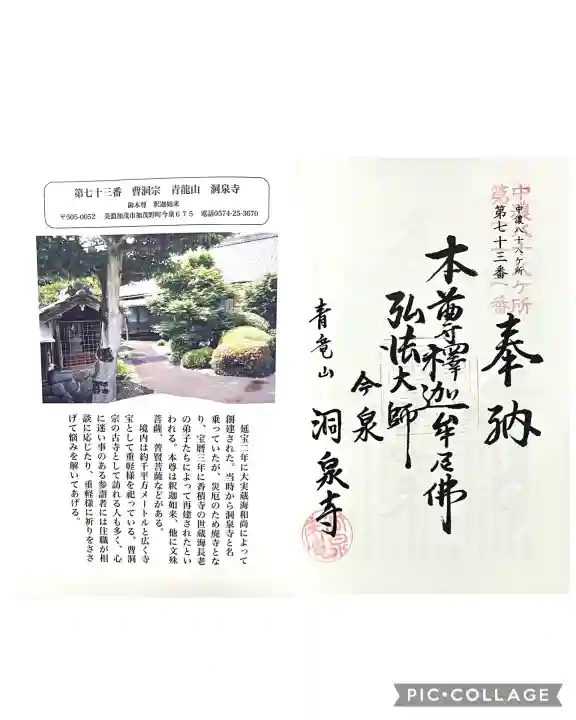 第七十三番　曹洞宗　青龍山　洞泉寺
御本尊　釈迦如来
〒505-0052　美濃加茂市加茂野町今泉６７５　電話0574-25-3670
延宝二年に大実蔵海和尚によって
創建された。当時から洞泉寺と名
乗っていたが、災厄のため廃寺とな
り、宝暦三年に香積寺の世蔵海長老
の弟子たちによって再建されたとい
われる。本尊は釈迦如来、他に文殊
菩薩、普賢菩薩などがある。
境内は約千平方メートルと広く寺
宝として重軽様を祀っている。曹洞
宗の古寺として訪れる人も多く、心
に迷い事のある参詣者には住職が相
談に応じたり、重軽様に祈りをささ
げて悩みを解いてあげる。
中濃八十八ヶ所
第七十三番
奉納
本尊釋迦牟尼佛
弘法大師
今泉
青竜山
洞泉寺
PIC•COLLAGE